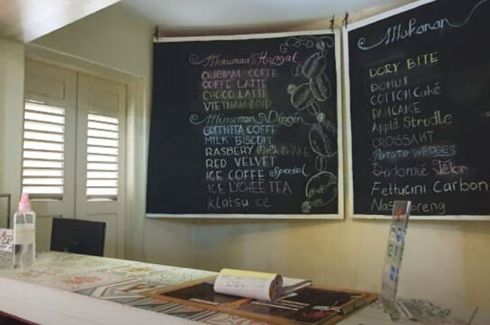 Minuman Hangat
ORIGINAL COFFE
COFFE LATTE
CHOCO LATTE
VIETNAM
Minuman Dingin
COFFE
MILK BISCUIT
RASBERRY MILK SHAKE
RED VELVET
ICE COFFE Special
ICE LYCHEE TEA
Klatsu ICE
Makanan
DORY BITE
DONUT
COTTON Cake
PANCAKE
Apple Strudle
CROISSANT
POTATO WEDGES
Indomie Telor
Fettucini Carbon
Nas oreng